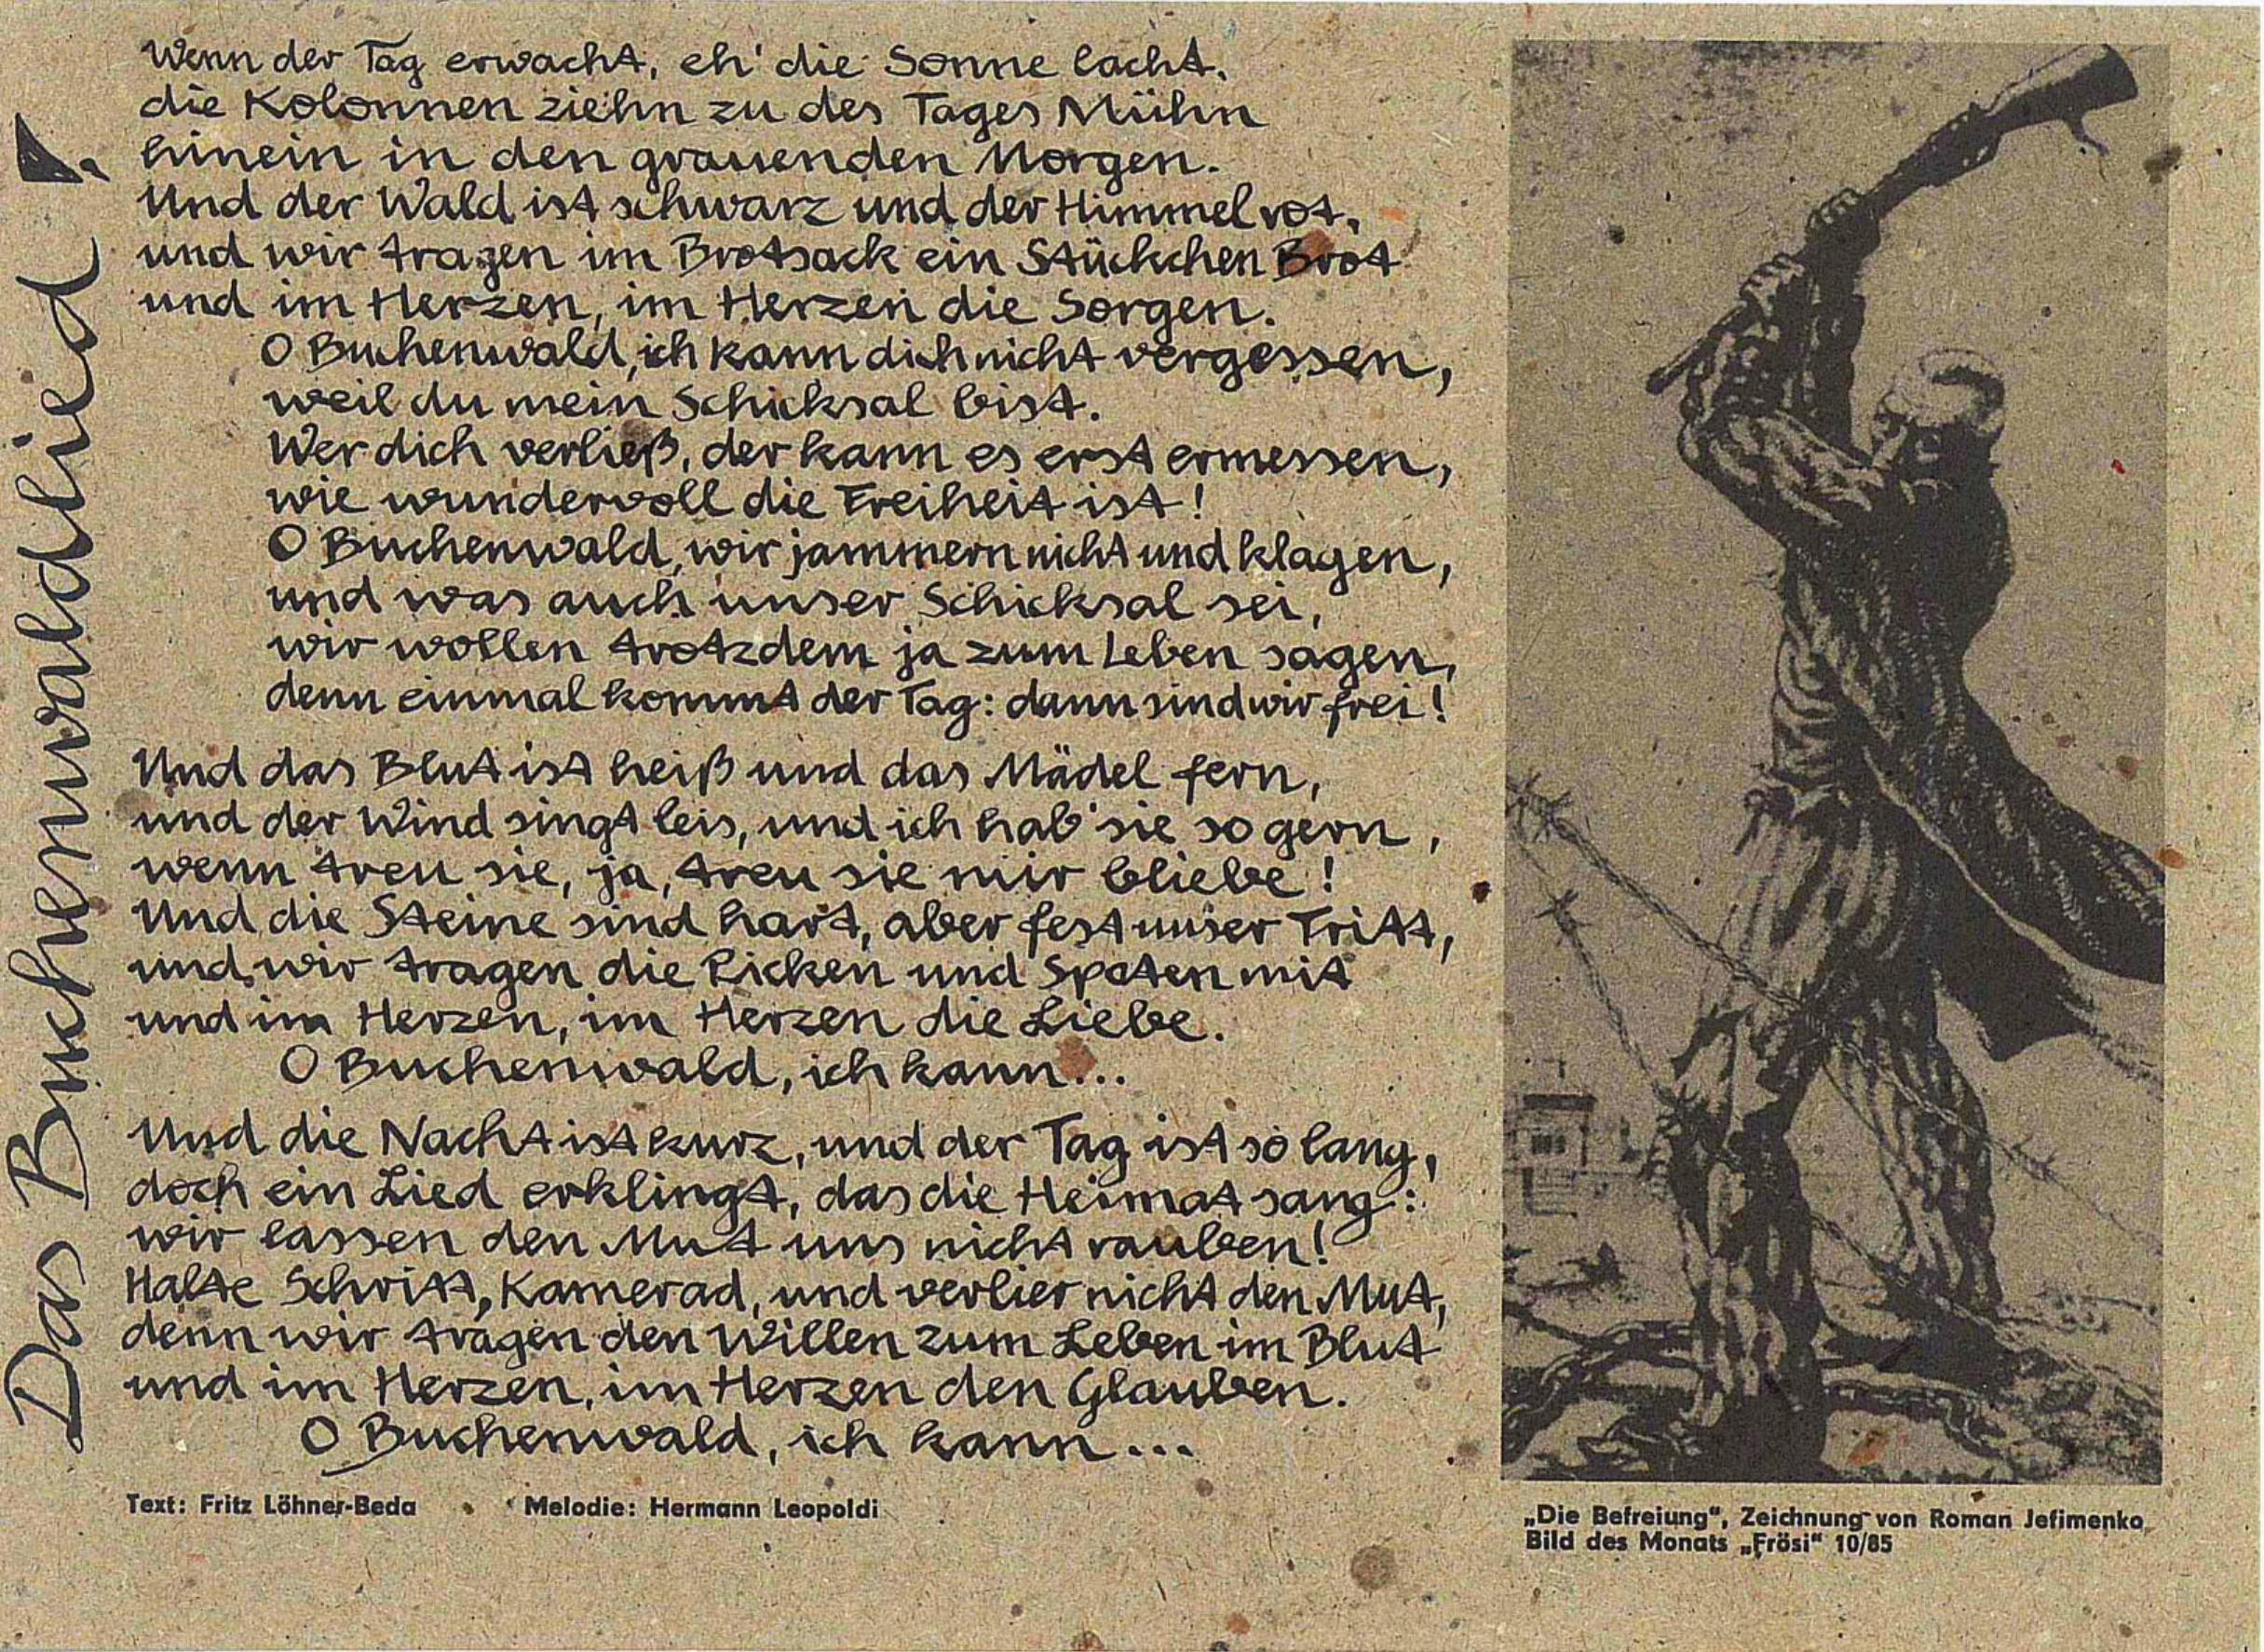 Das Buchenwaldlied!
Wenn der Tag erwacht, eh' die Sonne lacht,
die Kolonnen ziehn zu des Tages Mühn
hinein in den grauenden Morgen.
Und der Wald ist schwarz und der Himmel rot,
und wir tragen im Brotsack ein Stückchen Brot
und im Herzen, im Herzen die Sorgen.
O Buchenwald, ich kann dich nicht vergessen,
weil du mein Schicksal bist.
Wer dich verließ, der kann es erst ermessen,
wie wundervoll die Freiheit ist!
O Buchenwald, wir jammern nicht und klagen,
und was auch unser Schicksal sei,
wir wollen trotzdem ja zum Leben sagen,
denn einmal kommt der Tag: dann sind wir frei!
Und das Blut ist heiß und das Mädel fern,
und der Wind singt leis, und ich hab' sie so gern,
wenn treu sie, ja, treu sie mir bliebe!
Und die Steine sind hart, aber fest unser Tritt,
und wir tragen die Picken und Spaten mit
und im Herzen, im Herzen die Liebe.
O Buchenwald, ich kann...
Und die Nacht ist kurz, und der Tag ist so lang,
doch ein Lied erklingt, das die Heimat sang:
wir lassen den Mut uns nicht rauben!
Halte Schritt, Kamerad, und verlier nicht den Mut,
denn wir tragen den Willen zum Leben im Blut
und im Herzen, im Herzen den Glauben.
O Buchenwald, ich kann...
Text: Fritz Löhner-Beda Melodie: Hermann Leopoldi
„Die Befreiung“, Zeichnung von Roman Jefimenko
Bild des Monats „Frösi“ 10/85